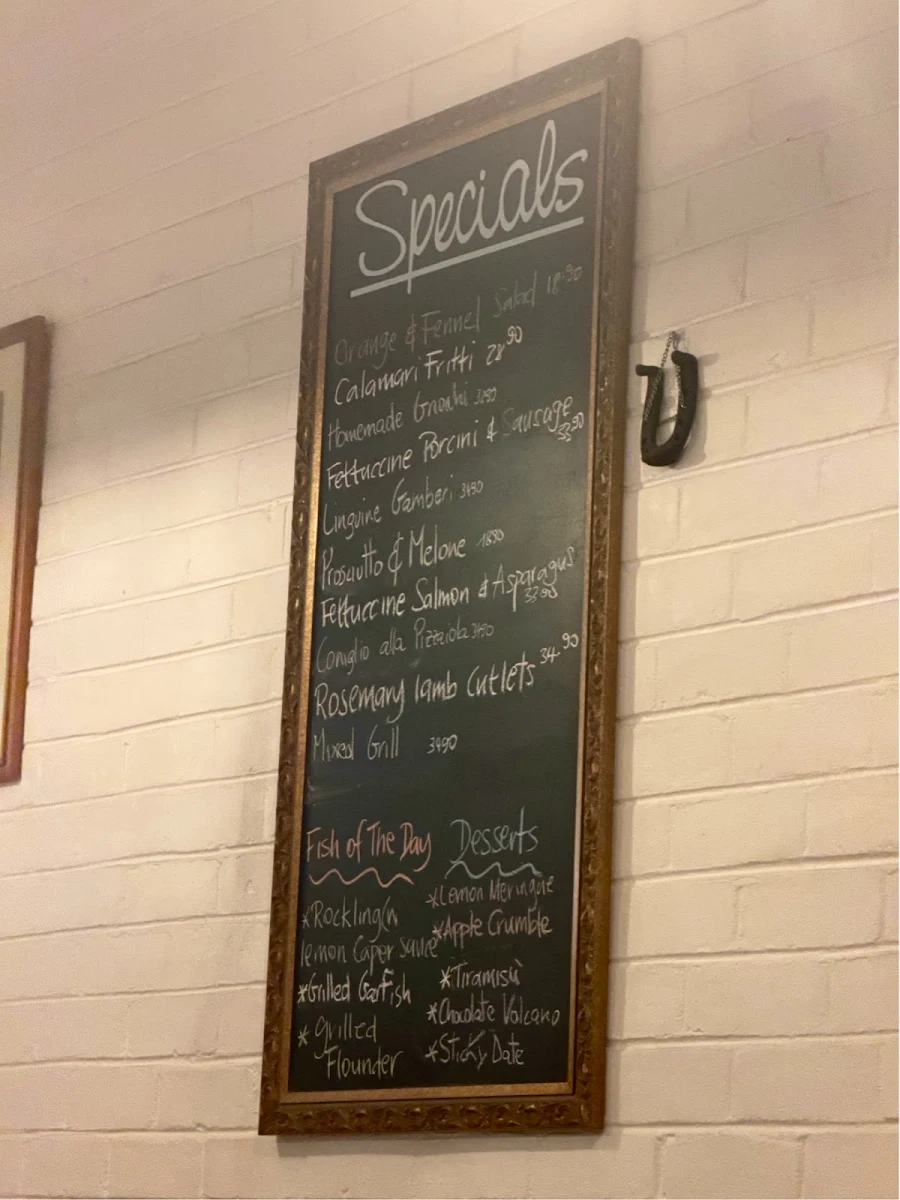 Specials
Orange & Fennel Salad 18.90
Calamari Fritti 28 90
Homemade Gnocchi 32 90
Fettuccine Porcini & Sausage
33 90
Linguine Gamberi 34 90
Prosciutto & Melone 18 90
Fettuccine Salmon & Asparagus
33.90
Coniglio alla Pizzaiola 34 90
Rosemary lamb Cutlets 34.90
Mixed Grill 34 90
Fish of The Day
*Rockling in
lemon Caper Sauce
*Grilled Garfish
* Grilled
Flounder
Desserts
*Lemon Meringue
*Apple Crumble
*Tiramisù
*Chocolate Volcano
*Sticky Date